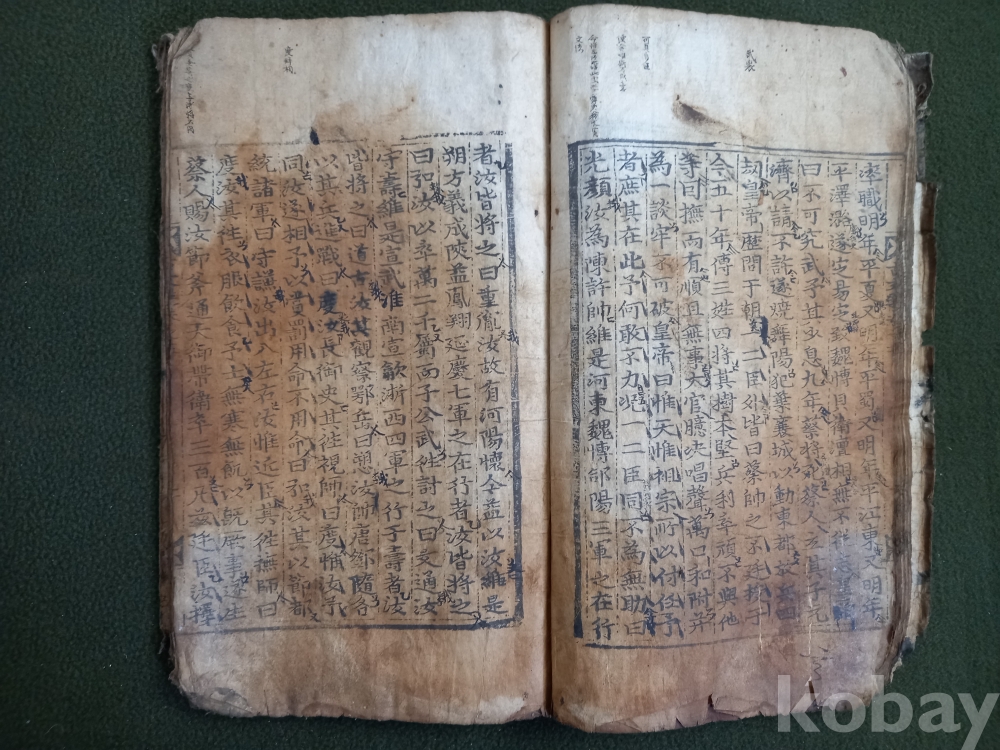 率職明年平夏又明年平蜀又明年平江東又明年
平澤潞遂定易定致魏博貝衛澶相無不從志皇帝
曰不可究武予其少息九年蔡將死蔡人立其子元
濟以請不許遂燒舞陽犯葉襄城以動東都放兵四
劫皇帝歷問于朝一二臣外皆曰蔡帥之不廷授于
今五十年傳三姓四將其樹本堅兵利卒頑不與他
等因撫而有順且無事大官臆决唱聲萬口和附并
為一談牢不可破皇帝曰惟天惟祖宗所以付任予
者庶其在此予何敢不力况一二臣同不為無助曰
光顏汝為陳許帥維是河東魏博郃陽三軍之在行
者汝皆將之曰重胤汝故有河陽懷今益以汝維是
朔方義成陝益鳳翔延慶七軍之在行者汝皆將之
曰弘汝以卒萬二千屬而子公武往討之曰文通汝
守壽維是宣武淮南宣歙浙西四軍之行于壽者汝
皆將之曰道古汝其觀察鄂岳曰愬汝帥唐鄧隨各
以其兵進戰曰度汝長御史其往視師曰度惟汝予
同汝遂相予以賞罰用命不用命曰弘汝其以節都
統諸軍曰守謙汝出入左右汝惟近臣其往撫師曰
度汝其往衣服飲食予士無寒無飢以旣厥事遂生
蔡人賜汝節斧通天御帶衛卒三百凡茲廷臣汝擇
kobay